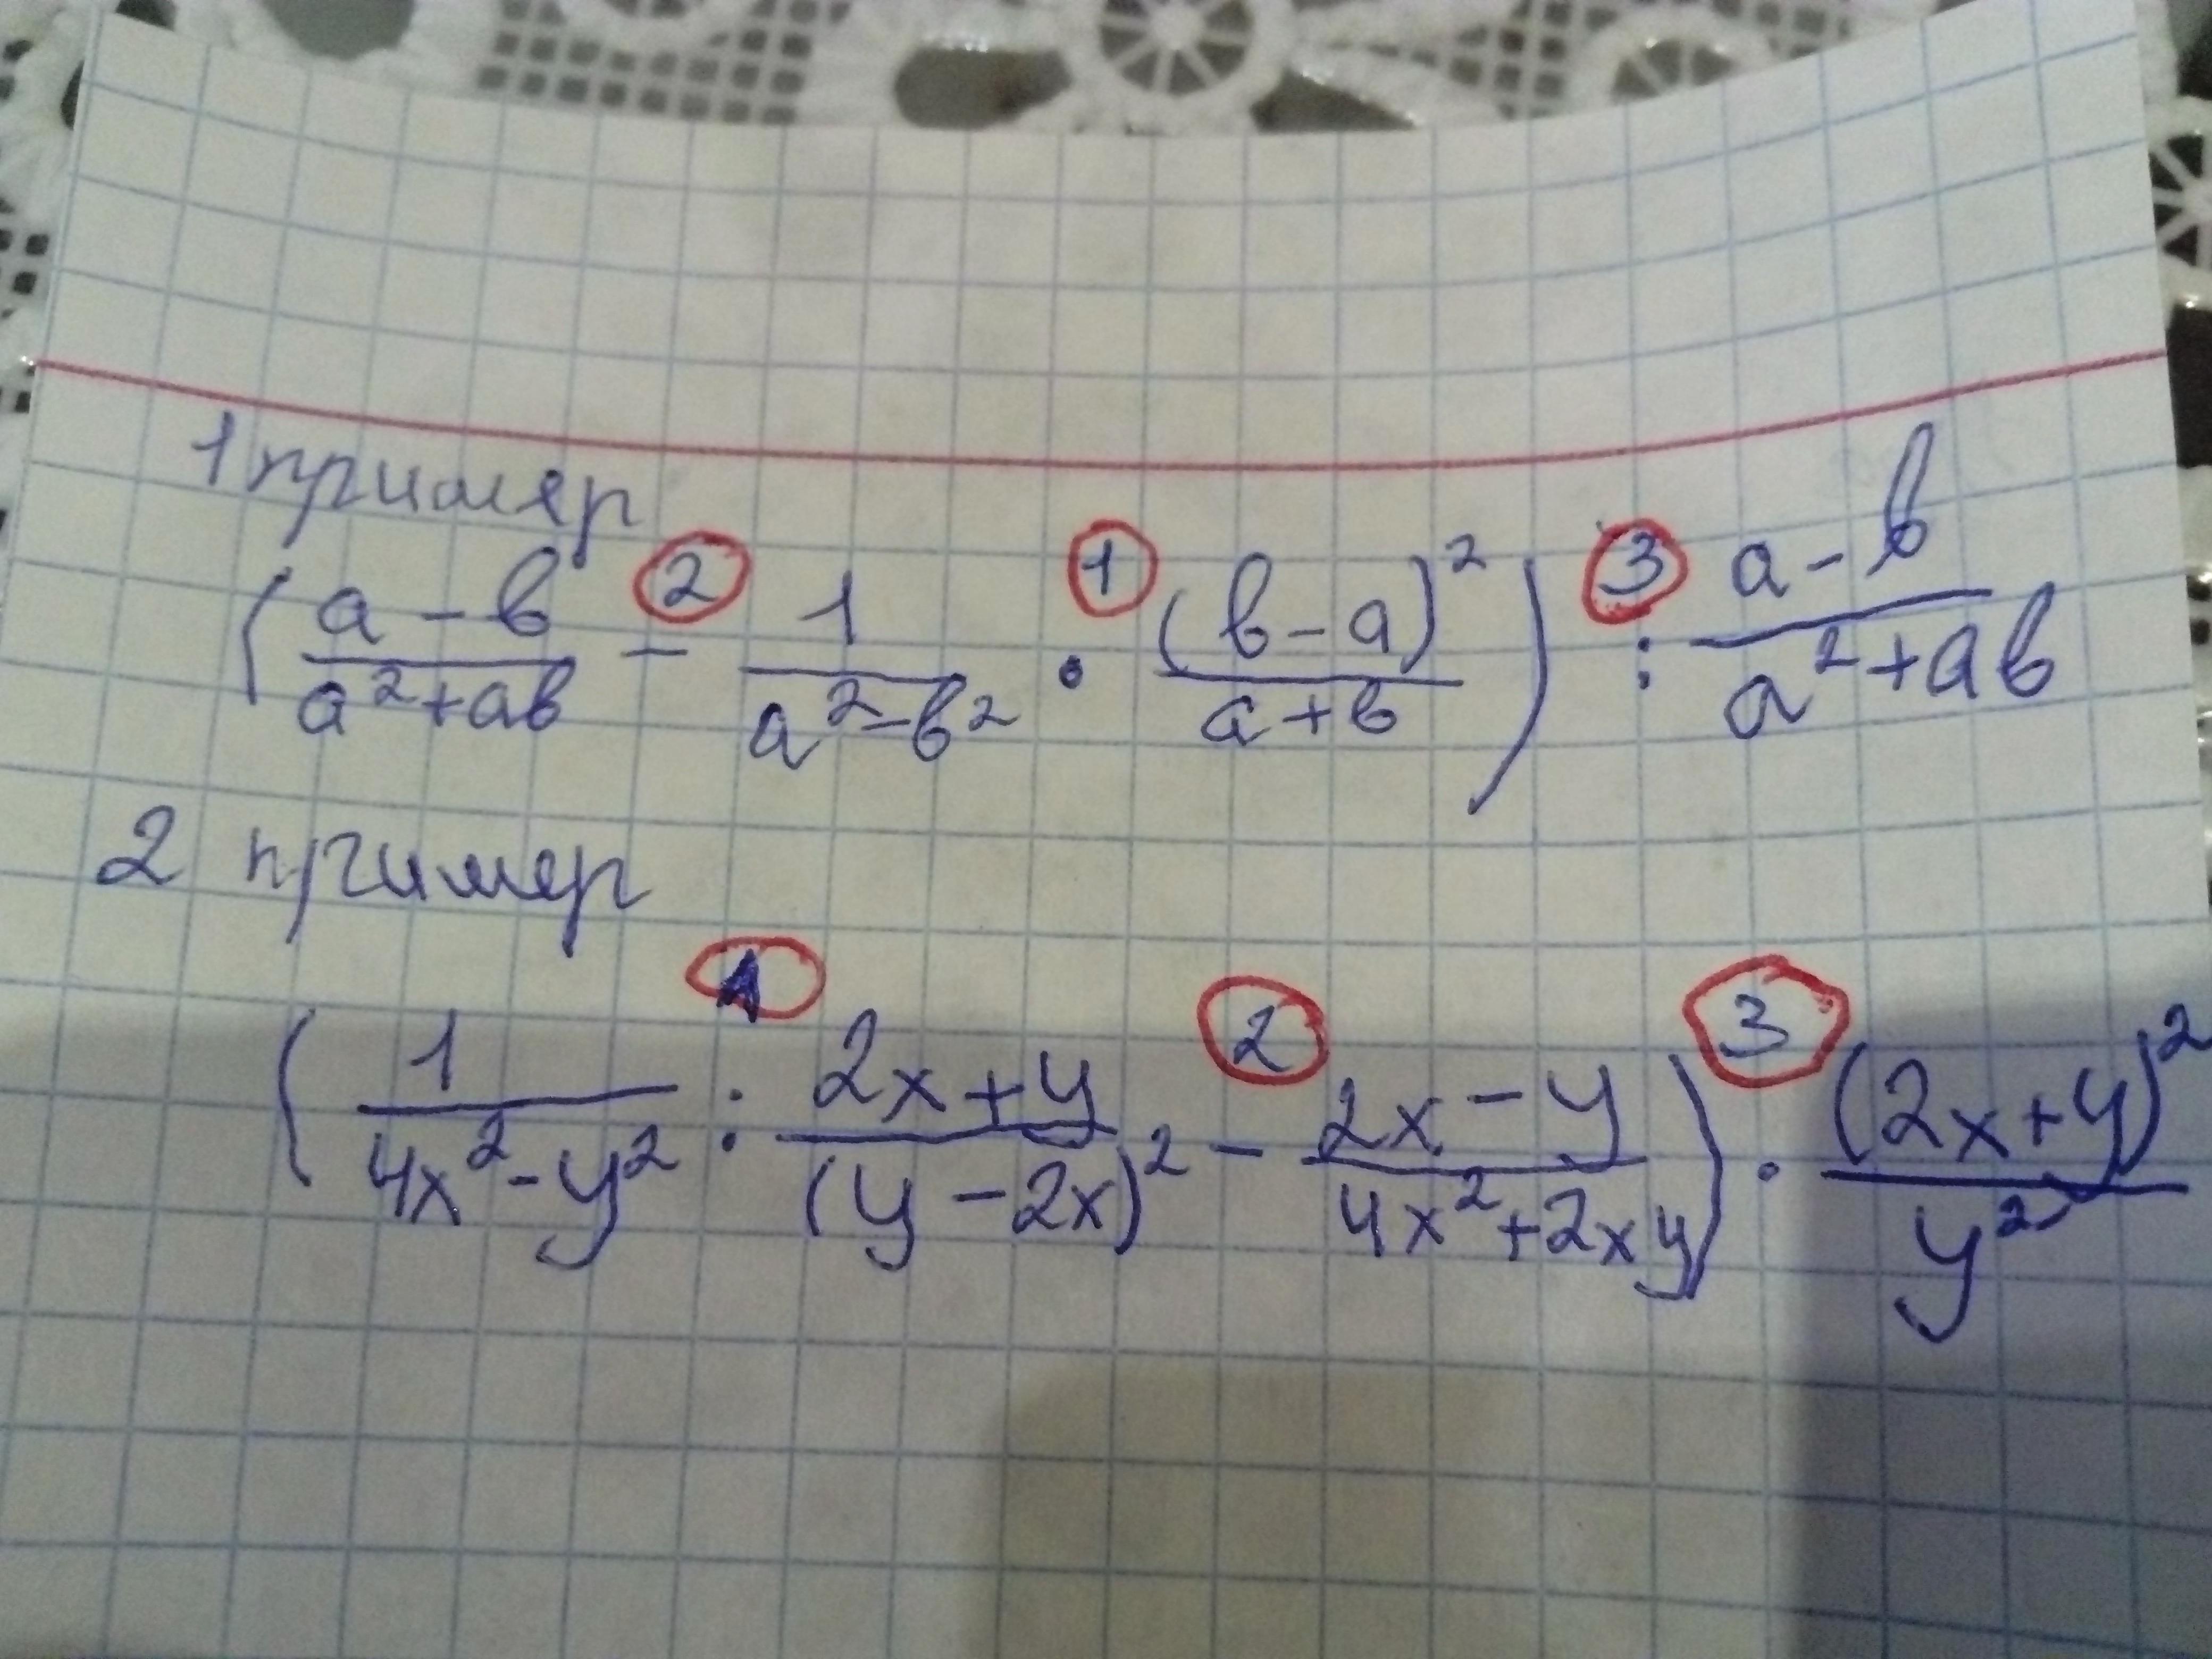 1 пример
( (a-b)/(a²+ab) -② 1/(a²-b²) ·① (b-a)²/(a+b) ) :③ (a-b)/(a²+ab)
2 пример
( 1/(4x²-y²) :① (2x+y)/(y-2x)² -② (2x-y)/(4x²+2xy) ) ·③ (2x+y)²/y²